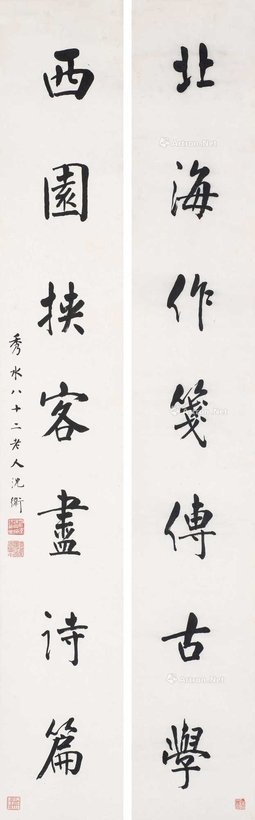 北海作箋傳古學
西園挾客盡詩篇
秀水八十二老人沈衛